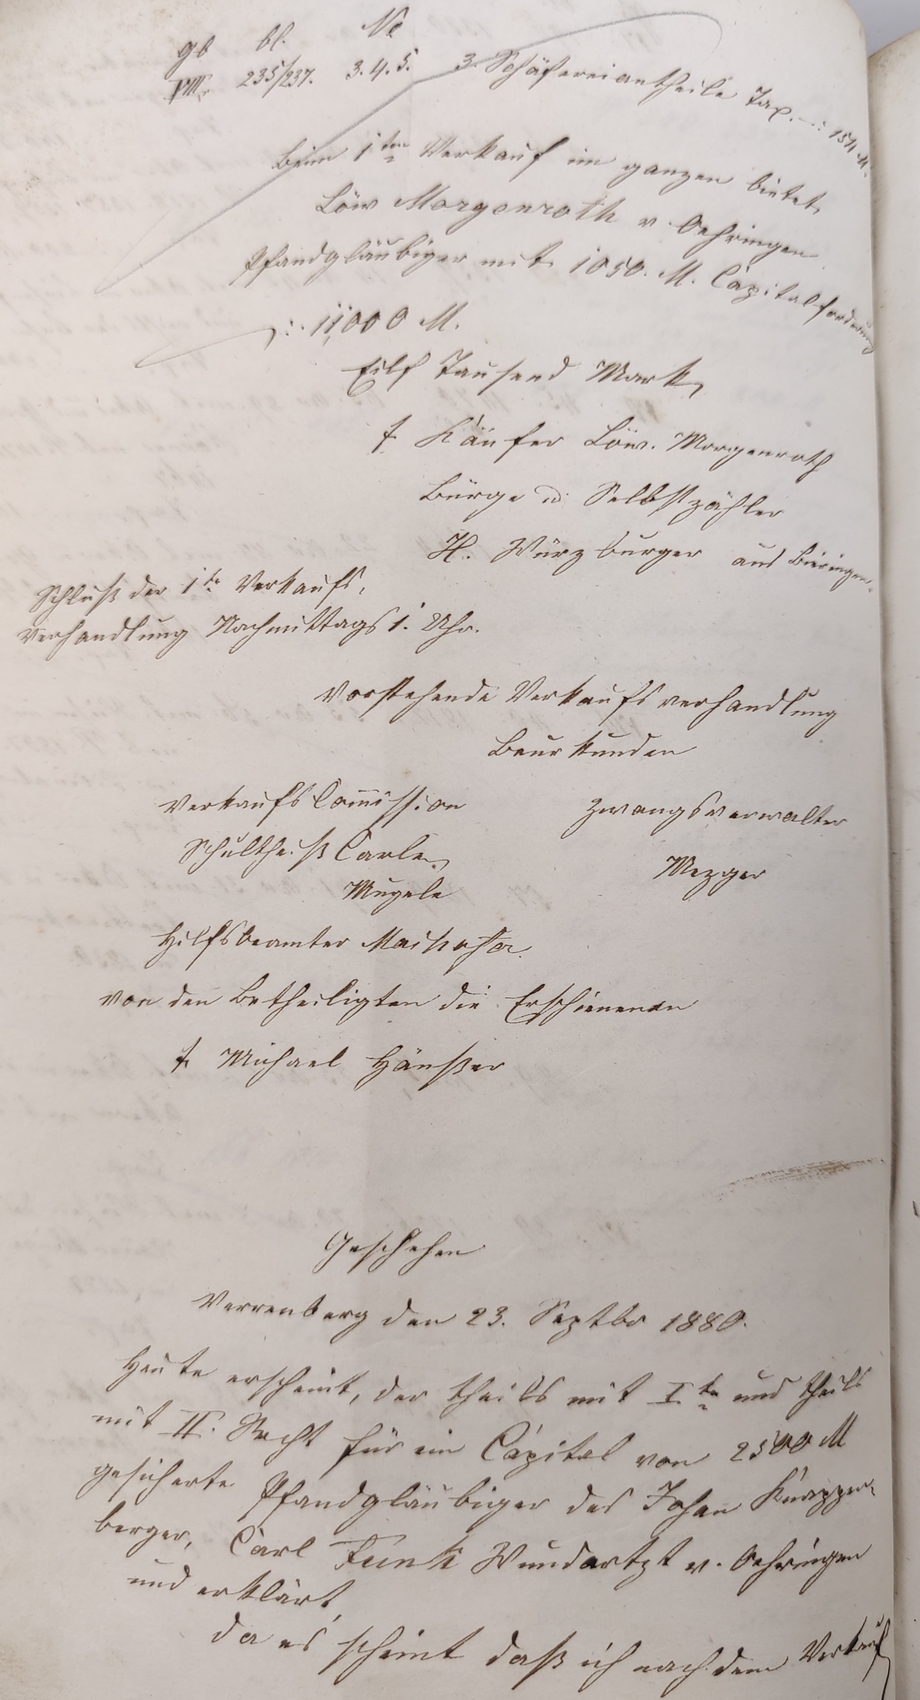 gb bl. No
VIII. 235/237. 3.4.5. 3. Schäfereiantheile Tax. -: 154 M.
Beim 1ten Verkauf im ganzen bietet
Löw Morgenroth v Oehringen
Pfandgläubiger mit 1050. M. Capitalforderung
-: 11000 M.
Eilf Tausend Mark,
t. Käufer Löw. Morgenroth
Bürge u Selbstzahler
H. Würzburger aus Bieringen.
Schluß der 1ten Verkaufs,
verhandlung Nachmittags 1. Uhr.
Vorstehende Verkaufsverhandlung
Beurkunden
Verkaufs Commission Zwangsverwalter
Schultheiß Carle Mezger
Mugele
Hilfsbeamter
von den Betheiligten die Erschienenen
t. Michael Häußer
Geschehen
Verrenberg den 23. Septbr 1880.
Heute erscheint, der theils mit I.te und theils
mit II. Recht für ein Capital von 2500 M
gesicherte Pfandgläubiger des Johan Knappen,
berger, Carl Funk Wundartzt v. Oehringen
und erklärt
da es scheint daß ich nach dem Verkauf